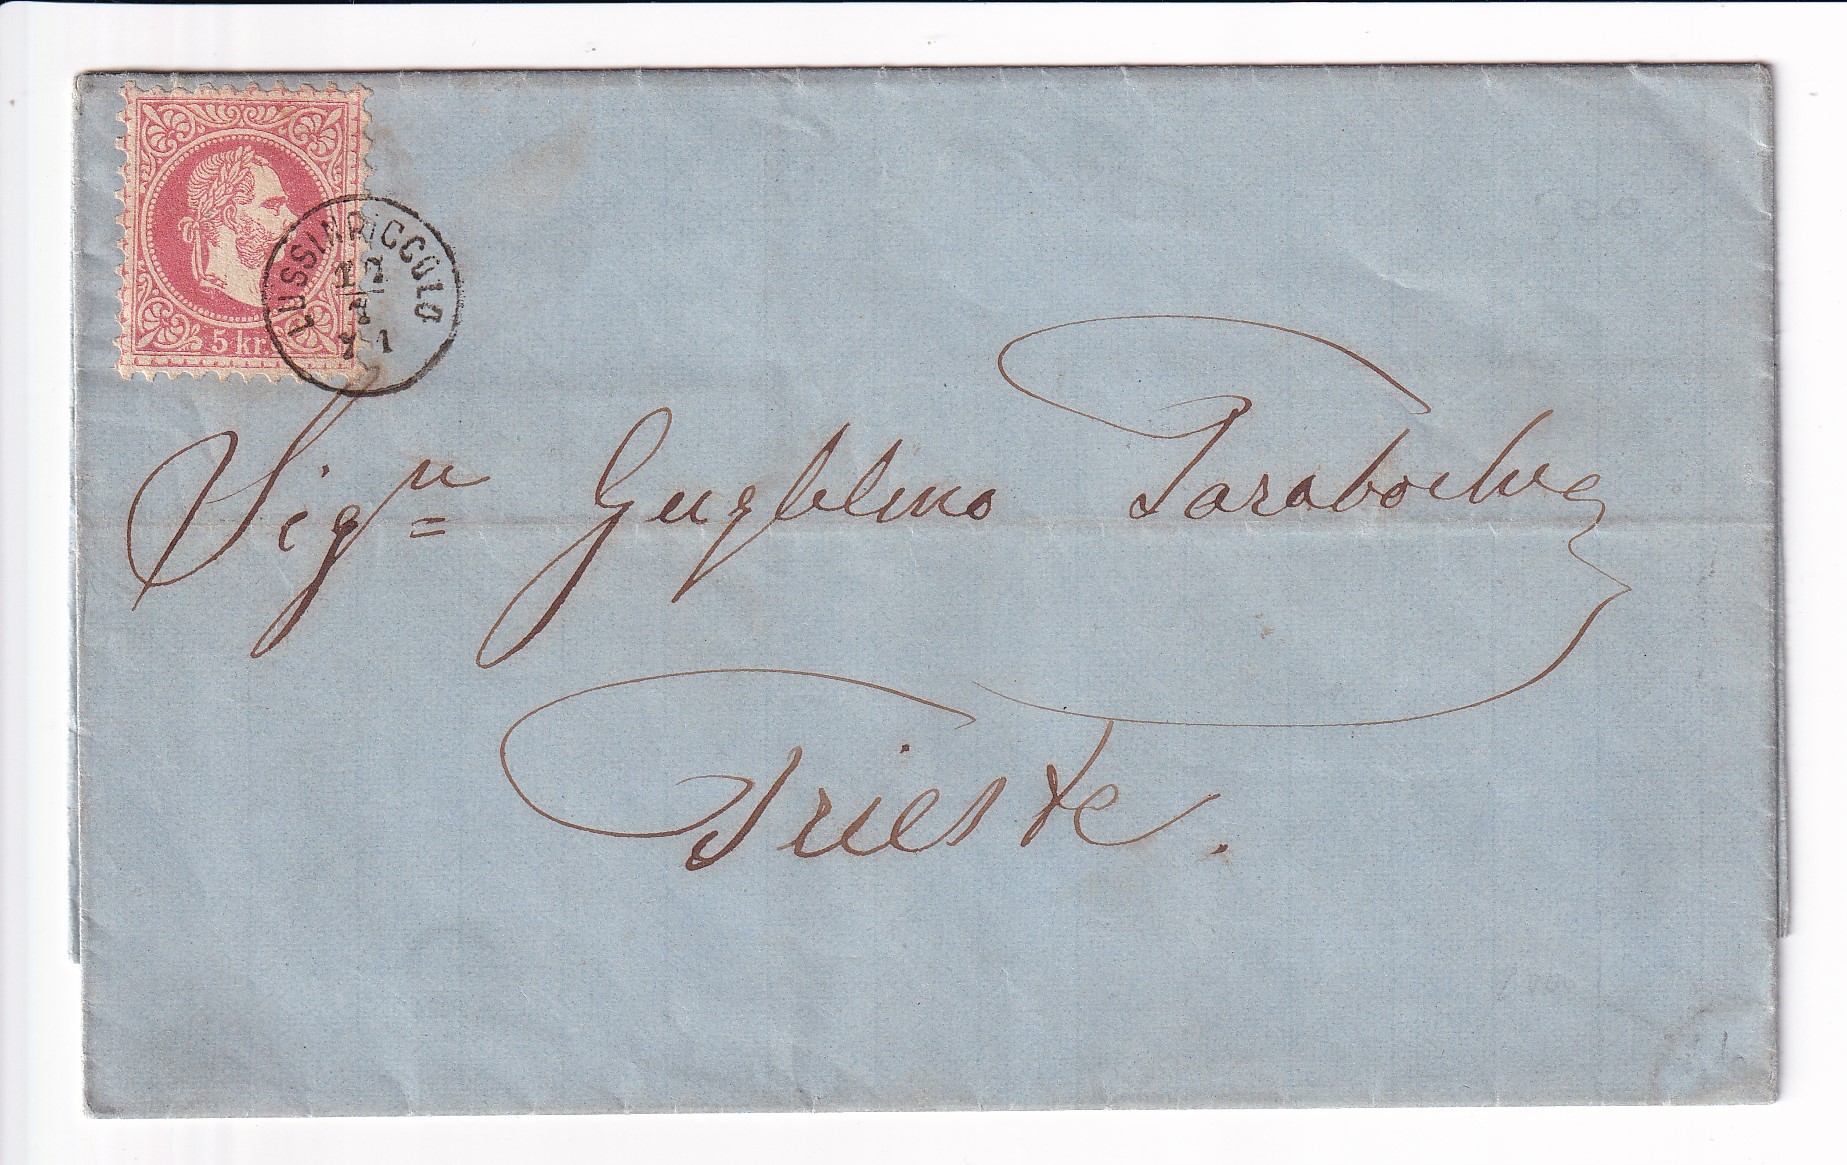 5 kr.
LUSSINPICCOLO
71
Sig.r Guglielmo Tarabochia
Trieste.